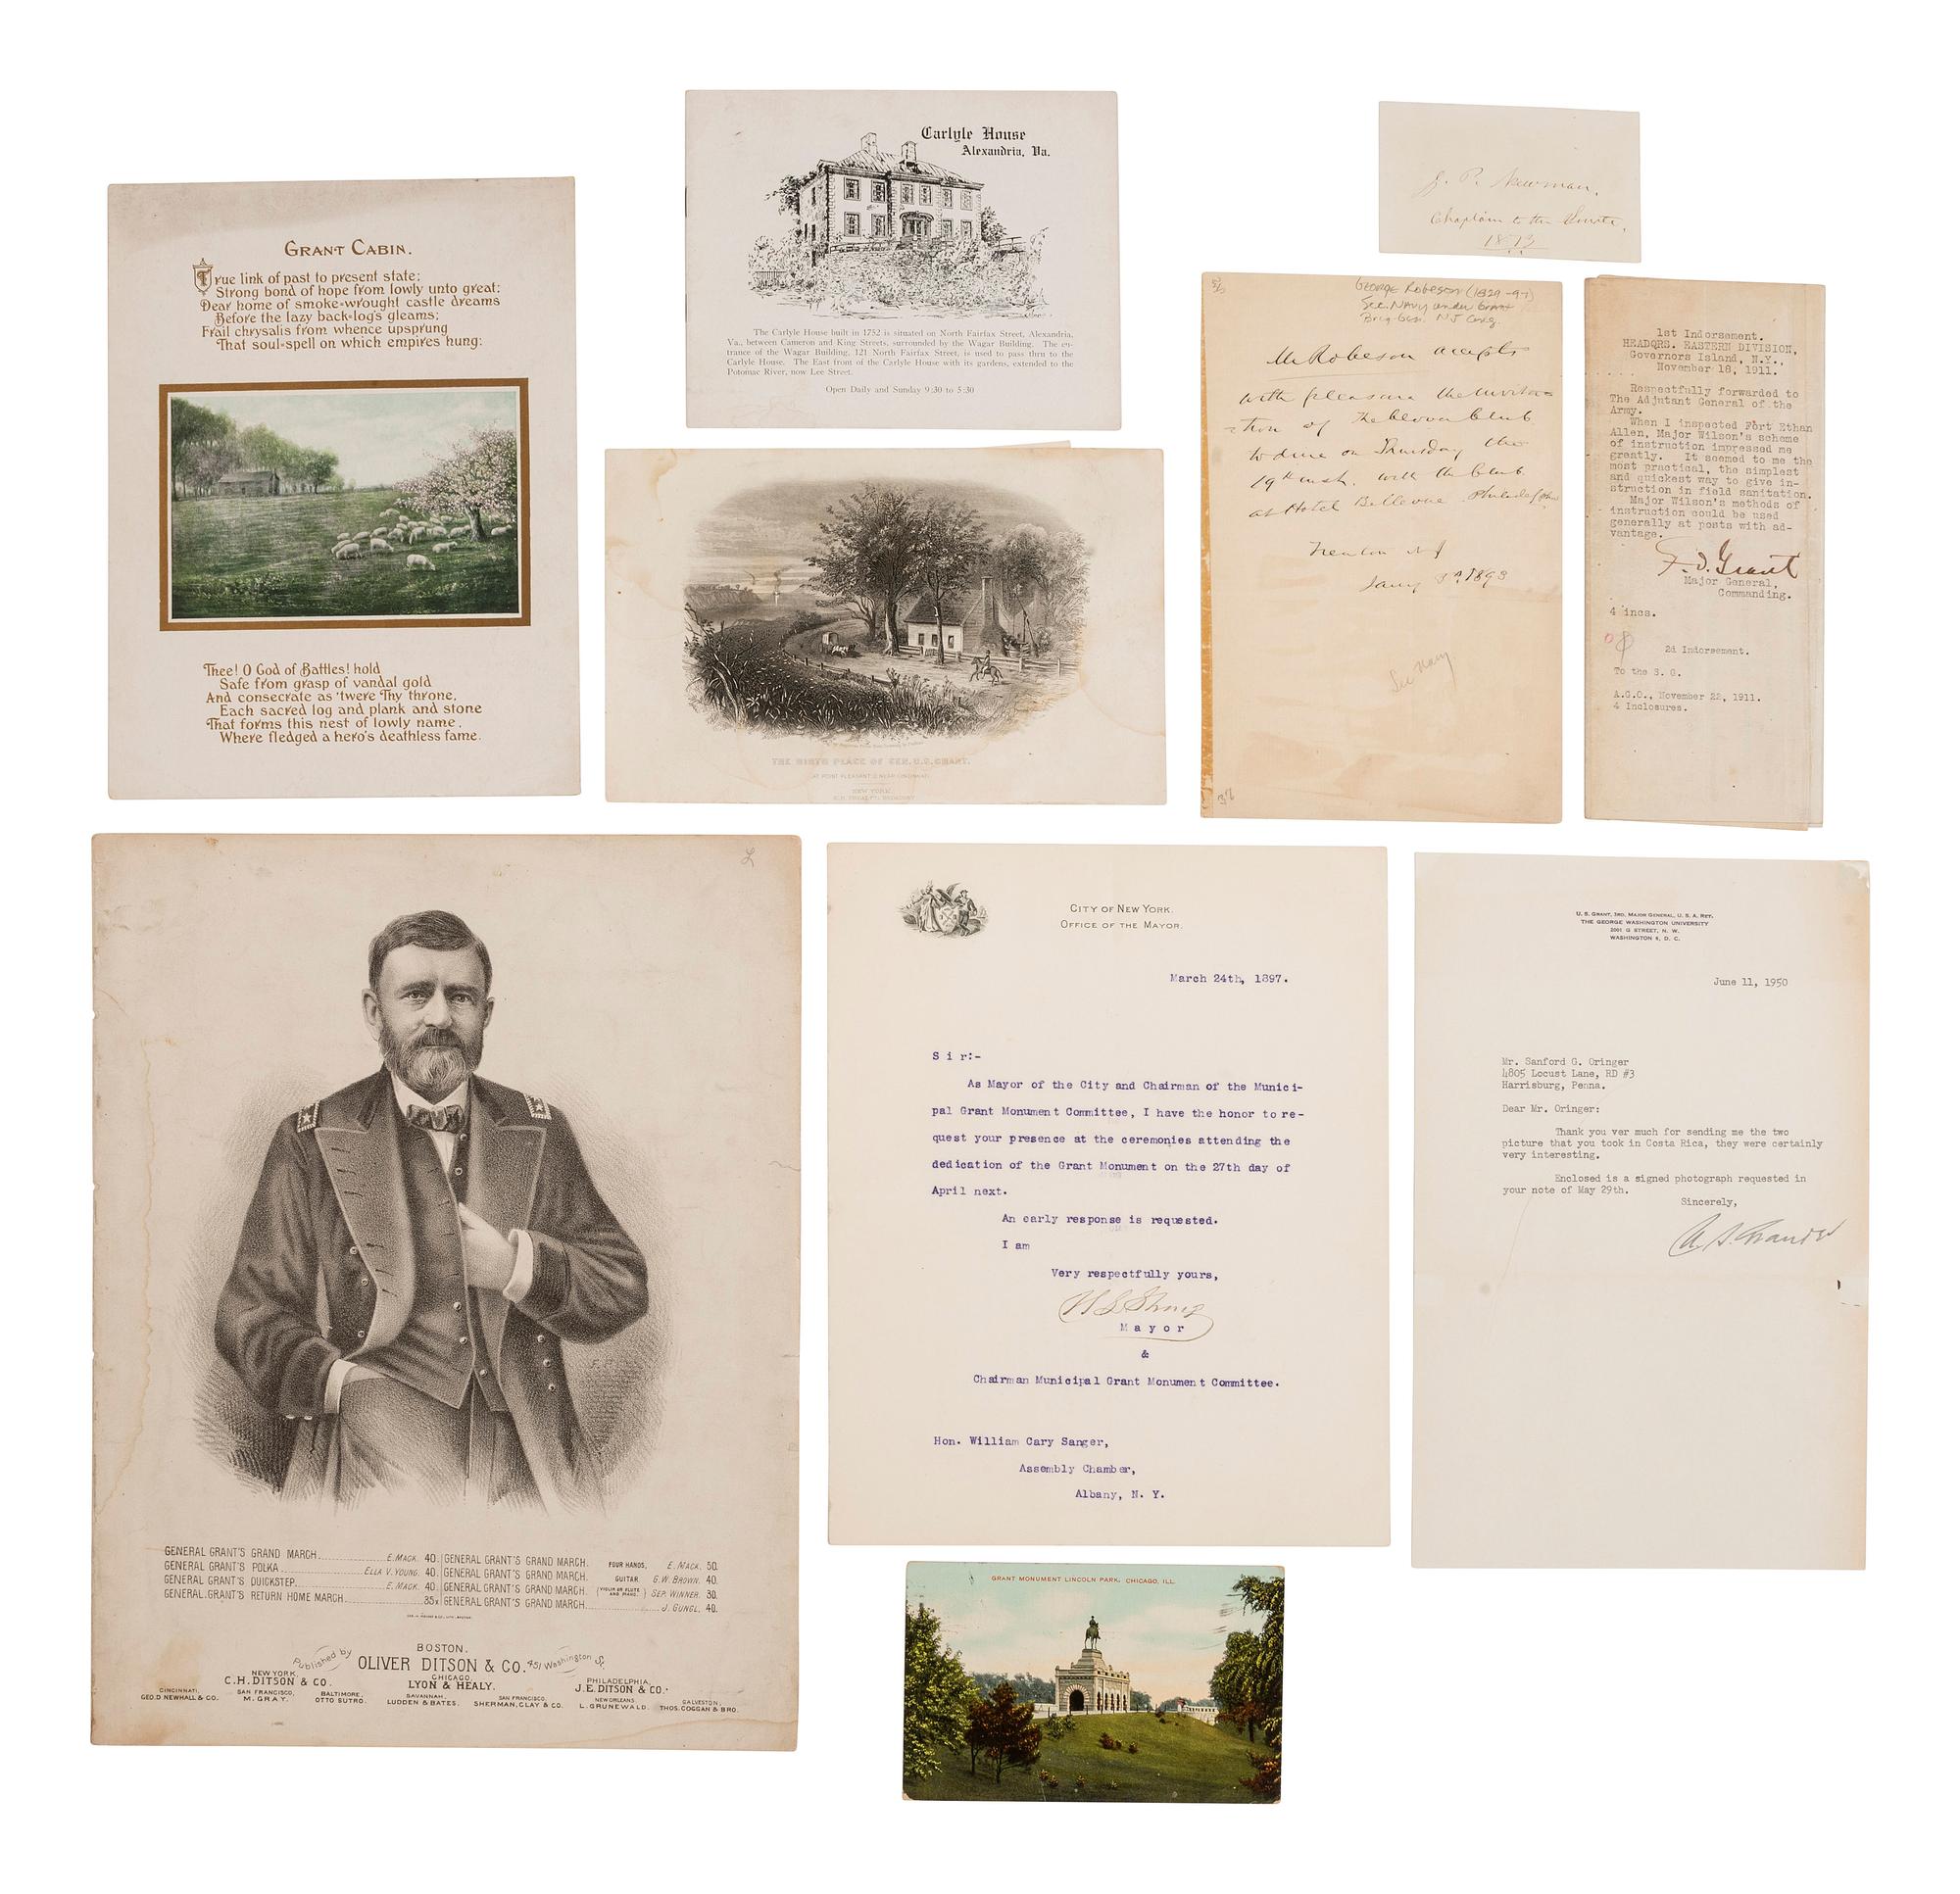 GRANT CABIN.
True link of past to present state;
Strong bond of hope from lowly unto great;
Dear home of smoke-wrought castle dreams
Before the lazy back-log's gleams;
Frail chrysalis from whence upsprung
That soul-spell on which empires hung:
Thee! O God of Battles! hold
Safe from grasp of vandal gold
And consecrate as 'twere Thy throne,
Each sacred log and plank and stone
That forms this nest of lowly name,
Where fledged a hero's deathless fame.
Carlyle House
Alexandria, Va.
The Carlyle House built in 1752 is situated on North Fairfax Street, Alexandria,
Va., between Cameron and King Streets, surrounded by the Wagar Building. The en-
trance of the Wagar Building, 121 North Fairfax Street, is used to pass thru to the
Carlyle House. The East front of the Carlyle House with its gardens, extended to the
Potomac River, now Lee Street.
Open Daily and Sunday 9:30 to 5:30
THE BIRTH PLACE OF GEN. U.S. GRANT.
AT POINT PLEASANT O. NEAR CINCINNATI
NEW YORK
J. P. Newman,
Chaplain to the Senate,
1873
George Robeson (1829-97)
Sec. Navy under Grant
Brig. Gen. NJ
Mr Robeson accepts
with pleasure the invita-
tion of the Clover Club
to dine on Thursday the
19th inst. with the Club
at Hotel Bellevue Philadelphia
Trenton NJ
Jany 3d, 1893
Sec Navy
37
1st Indorsement.
HEADQRS. EASTERN DIVISION,
Governors Island, N.Y.,
November 18, 1911.
Respectfully forwarded to
The Adjutant General of the
Army.
When I inspected Fort Ethan
Allen, Major Wilson's scheme
of instruction impressed me
greatly. It seemed to me the
most practical, the simplest
and quickest way to give in-
struction in field sanitation.
Major Wilson's methods of
instruction could be used
generally at posts with ad-
vantage.
F. D. Grant
Major General,
Commanding.
4 incs.
2d Indorsement.
To the S. G.
A.G.O., November 22, 1911.
4 Inclosures.
GENERAL GRANT'S GRAND MARCH E. MACK. 40. GENERAL GRANT'S GRAND MARCH. FOUR HANDS, E. MACK. 50.
GENERAL GRANT'S POLKA ELLA V. YOUNG. 40. GENERAL GRANT'S GRAND MARCH. GUITAR G.W. BROWN. 40.
GENERAL GRANT'S QUICKSTEP E. MACK. 40. GENERAL GRANT'S GRAND MARCH. (VIOLIN OR FLUTE AND PIANO.) SEP. WINNER. 30.
GENERAL GRANT'S RETURN HOME MARCH 35x GENERAL GRANT'S GRAND MARCH J. GUNGL. 40.
BOSTON.
Published by OLIVER DITSON & CO. 451 Washington St.
NEW YORK, CHICAGO, PHILADELPHIA,
C.H. DITSON & CO. LYON & HEALY. J.E. DITSON & CO.
CINCINNATI, SAN FRANCISCO, BALTIMORE, SAVANNAH, SAN FRANCISCO, NEW ORLEANS, GALVESTON,
GEO. D. NEWHALL & CO. M. GRAY. OTTO SUTRO. LUDDEN & BATES. SHERMAN, CLAY & CO. L. GRUNEWALD. THOS. COGGAN & BRO.
CITY OF NEW YORK.
OFFICE OF THE MAYOR.
March 24th, 1897.
Sir:-
As Mayor of the City and Chairman of the Munici-
pal Grant Monument Committee, I have the honor to re-
quest your presence at the ceremonies attending the
dedication of the Grant Monument on the 27th day of
April next.
An early response is requested.
I am
Very respectfully yours,
W L Strong
Mayor
&
Chairman Municipal Grant Monument Committee.
Hon. William Cary Sanger,
Assembly Chamber,
Albany, N. Y.
U. S. GRANT, 3RD, MAJOR GENERAL, U. S. A. RET.
THE GEORGE WASHINGTON UNIVERSITY
2001 G STREET, N. W.
WASHINGTON 6, D. C.
June 11, 1950
Mr. Sanford G. Oringer
4805 Locust Lane, RD #3
Harrisburg, Penna.
Dear Mr. Oringer:
Thank you ver much for sending me the two
picture that you took in Costa Rica, they were certainly
very interesting.
Enclosed is a signed photograph requested in
your note of May 29th.
Sincerely,
U. S. Grant 3d
GRANT MONUMENT LINCOLN PARK, CHICAGO, ILL.